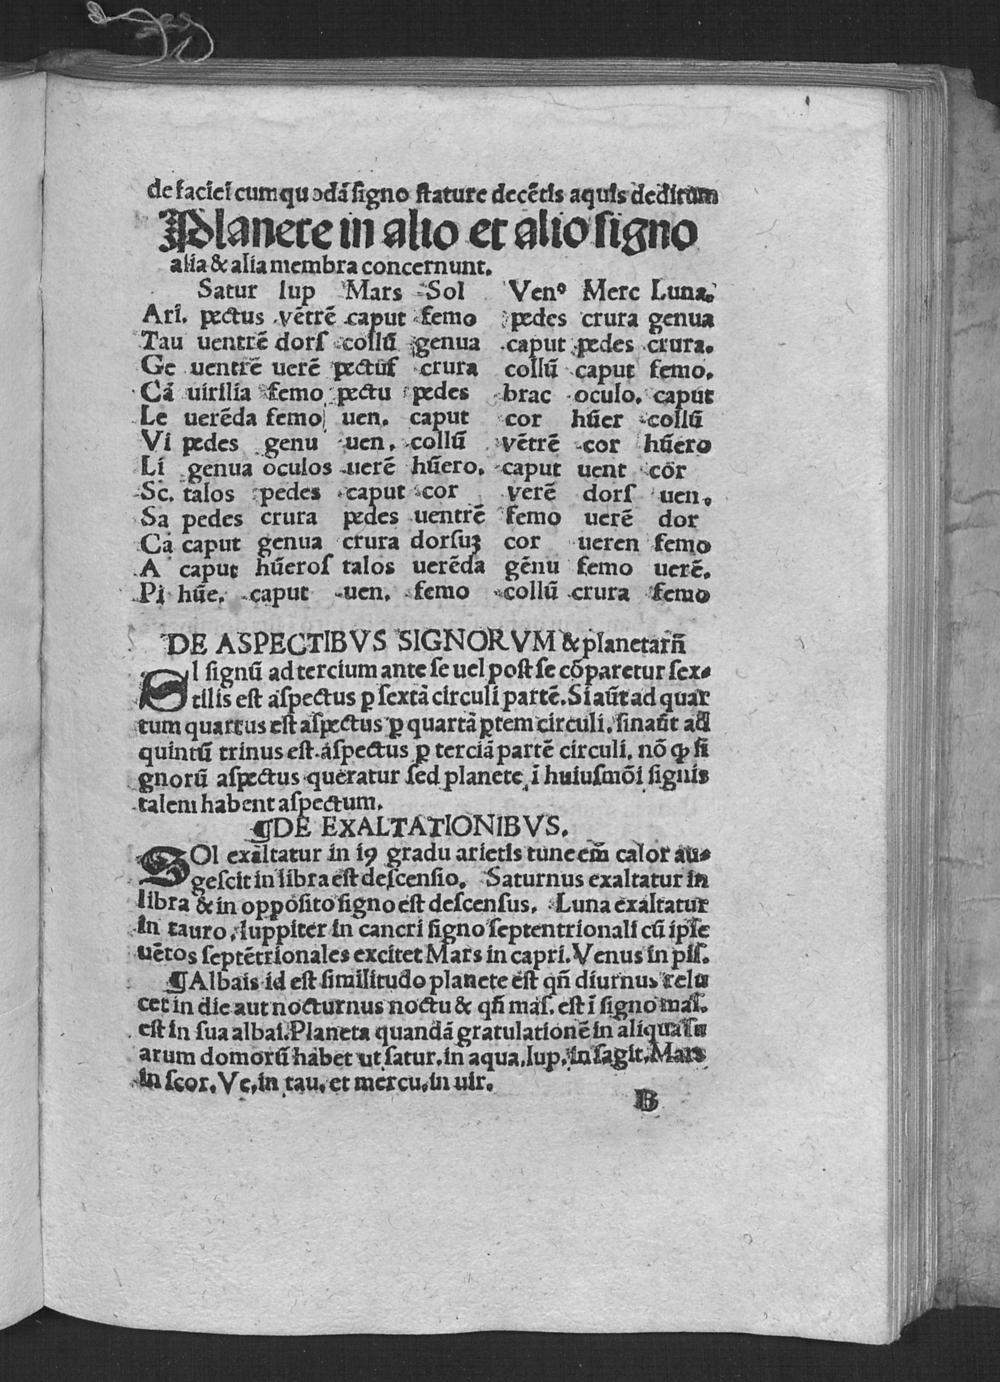 de faciei cum quodã signo stature decẽtis aquis deditum
Planete in alio et alio signo
alia & alia membra concernunt.
Satur Iup Mars Sol Venº Merc Luna.
Ari. pectus vẽtrẽ caput femo pedes crura genua
Tau uentrẽ dorſ collũ genua caput pedes crura.
Ge uentrẽ uerẽ pectuſ crura collũ caput femo.
Cã uirilia femo pectu pedes brac oculo. caput
Le uerẽda femo uen. caput cor hũer collũ
Vi pedes genu uen. collũ vẽtrẽ cor hũero
Li genua oculos uerẽ hũero. caput uent cor
Sc. talos pedes caput cor verẽ dorſ uen.
Sa pedes crura pedes uentrẽ femo uerẽ dor
Ca caput genua crura dorsuꝫ cor ueren femo
A caput hũeroſ talos uerẽda gẽnu femo uerẽ.
Pi hũe. caput uen. femo collũ crura femo
DE ASPECTIBVS SIGNORVM & planetarũ
SI ſignũ ad tercium ante ſe uel poſt ſe cõparetur ſex-
tilis eſt aſpectus ꝑ ſextã circuli partẽ. Si aũt ad quar
tum quartus eſt aſpectus ꝑ quartã ꝑtem circuli. ſin aũt ad
quintũ trinus eſt aſpectus ꝑ terciã partẽ circuli. nõ ꝙ ſi
gnorũ aſpectus queratur ſed planete ĩ huiuſmõi ſignis
talem habent aſpectum.
¶DE EXALTATIONIBVS.
SOl exaltatur in 19 gradu arietis tunc em̃ calor au-
geſcit in libra eſt deſcenſio. Saturnus exaltatur in
libra & in oppoſito ſigno eſt deſcenſus. Luna exaltatur
in tauro. Iuppiter in cancri ſigno ſeptentrionali cũ ipſe
uẽtos ſeptẽtrionales excitet Mars in capri. Venus in piſ.
¶Albais id eſt ſimilitudo planete eſt qñ diurnus relu
cet in die aut nocturnus noctu & qñ maſ. eſt ĩ ſigno maſ.
eſt in ſua albai. Planeta quandã gratulationẽ in aliqua ſu
arum domorũ habet ut ſatur. in aqua. Iup. in ſagit. Mars
in ſcor. Ve. in tau. et mercu. in uir.
B